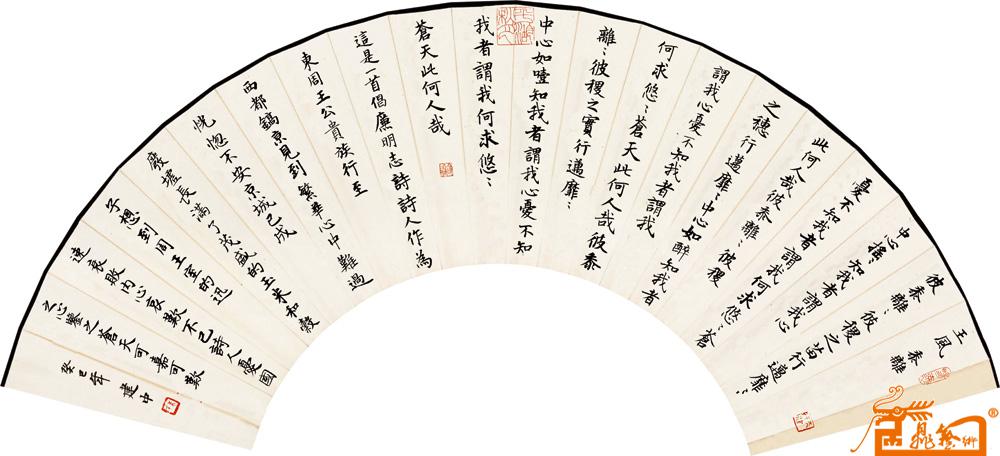 王風 黍離
彼黍離〻彼稷之苗行邁靡〻
中心搖〻知我者謂我心
憂不知我者謂我何求悠〻蒼
此何人哉彼黍離〻彼稷
之穗行邁靡〻中心如醉知我者
謂我心憂不知我者謂我
何求悠〻蒼天此何人哉彼黍
離〻彼稷之實行邁靡〻
中心如噎知我者謂我心憂不知
我者謂我何求悠〻
蒼天此何人哉
這是一首倡廉明志詩詩人作為
東周王公貴族行至
西都鎬京見到繁華心中難過
恍惚不安京城已成
廢墟長滿了茂盛的玉米和穀
子想到周王室的迅
速衰敗內心哀歎不已詩人憂國
之心鑒之蒼天可嘉可歎
癸巳年 建中